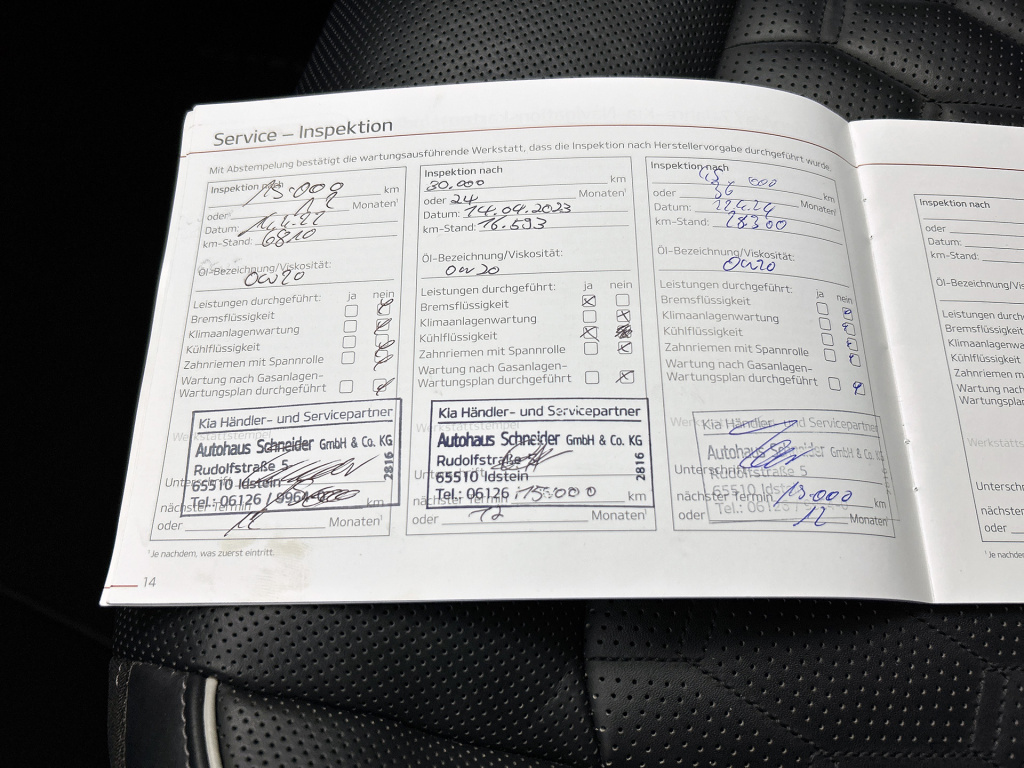 Service – Inspektion
Mit Abstempelung bestätigt die wartungsausführende Werkstatt, dass die Inspektion nach Herstellervorgabe durchgeführt wurde.
Inspektion nach
15.000 km
oder¹ 12 Monaten¹
Datum:
km-Stand: 6810
Öl-Bezeichnung/Viskosität:
0w20
Leistungen durchgeführt: ja nein
Bremsflüssigkeit
Klimaanlagenwartung
Kühlflüssigkeit
Zahnriemen mit Spannrolle
Wartung nach Gasanlagen-
Wartungsplan durchgeführt
Kia Händler- und Servicepartner
Werkstattstempel
Autohaus Schneider GmbH & Co. KG
Rudolfstraße 5
65510 Idstein
2816
Unterschrift
Tel.: 06126 /
nächster Termin km
oder Monaten¹
Inspektion nach
30.000 km
oder 24 Monaten¹
Datum: 14.04.2023
km-Stand: 16.593
Öl-Bezeichnung/Viskosität:
0w20
Leistungen durchgeführt: ja nein
Bremsflüssigkeit
Klimaanlagenwartung
Kühlflüssigkeit
Zahnriemen mit Spannrolle
Wartung nach Gasanlagen-
Wartungsplan durchgeführt
Kia Händler- und Servicepartner
Autohaus Schneider GmbH & Co. KG
Rudolfstraße
65510 Idstein
2816
Tel.: 06126
nächster Termin 15.000 km
oder 12 Monaten¹
Inspektion nach
km
oder 36 Monaten¹
Datum:
km-Stand: 28300
Öl-Bezeichnung/Viskosität:
0w20
Leistungen durchgeführt: ja nein
Bremsflüssigkeit
Klimaanlagenwartung
Kühlflüssigkeit
Zahnriemen mit Spannrolle
Wartung nach Gasanlagen-
Wartungsplan durchgeführt
Kia Händler- und Servicepartner
Autohaus Schneider GmbH & Co. KG
Rudolfstraße 5
Unterschrift
65510 Idstein
nächster Termin 15.000 km
Tel.: 06126
oder 12 Monaten¹
¹Je nachdem, was zuerst eintritt.
14
Inspektion nach
oder
Datum:
km-Stand:
Öl-Bezeichnung/
Leistungen durch
Bremsflüssigkeit
Klimaanlagenwart
Kühlflüssigkeit
Zahnriemen mit
Wartung nach
Wartungsplan
Werkstatts
Unterschr
nächster
oder
¹Je nachdem